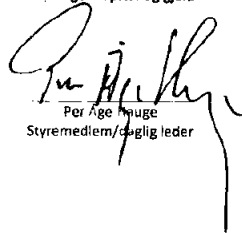 Per Åge Hauge
Styremedlem/daglig leder